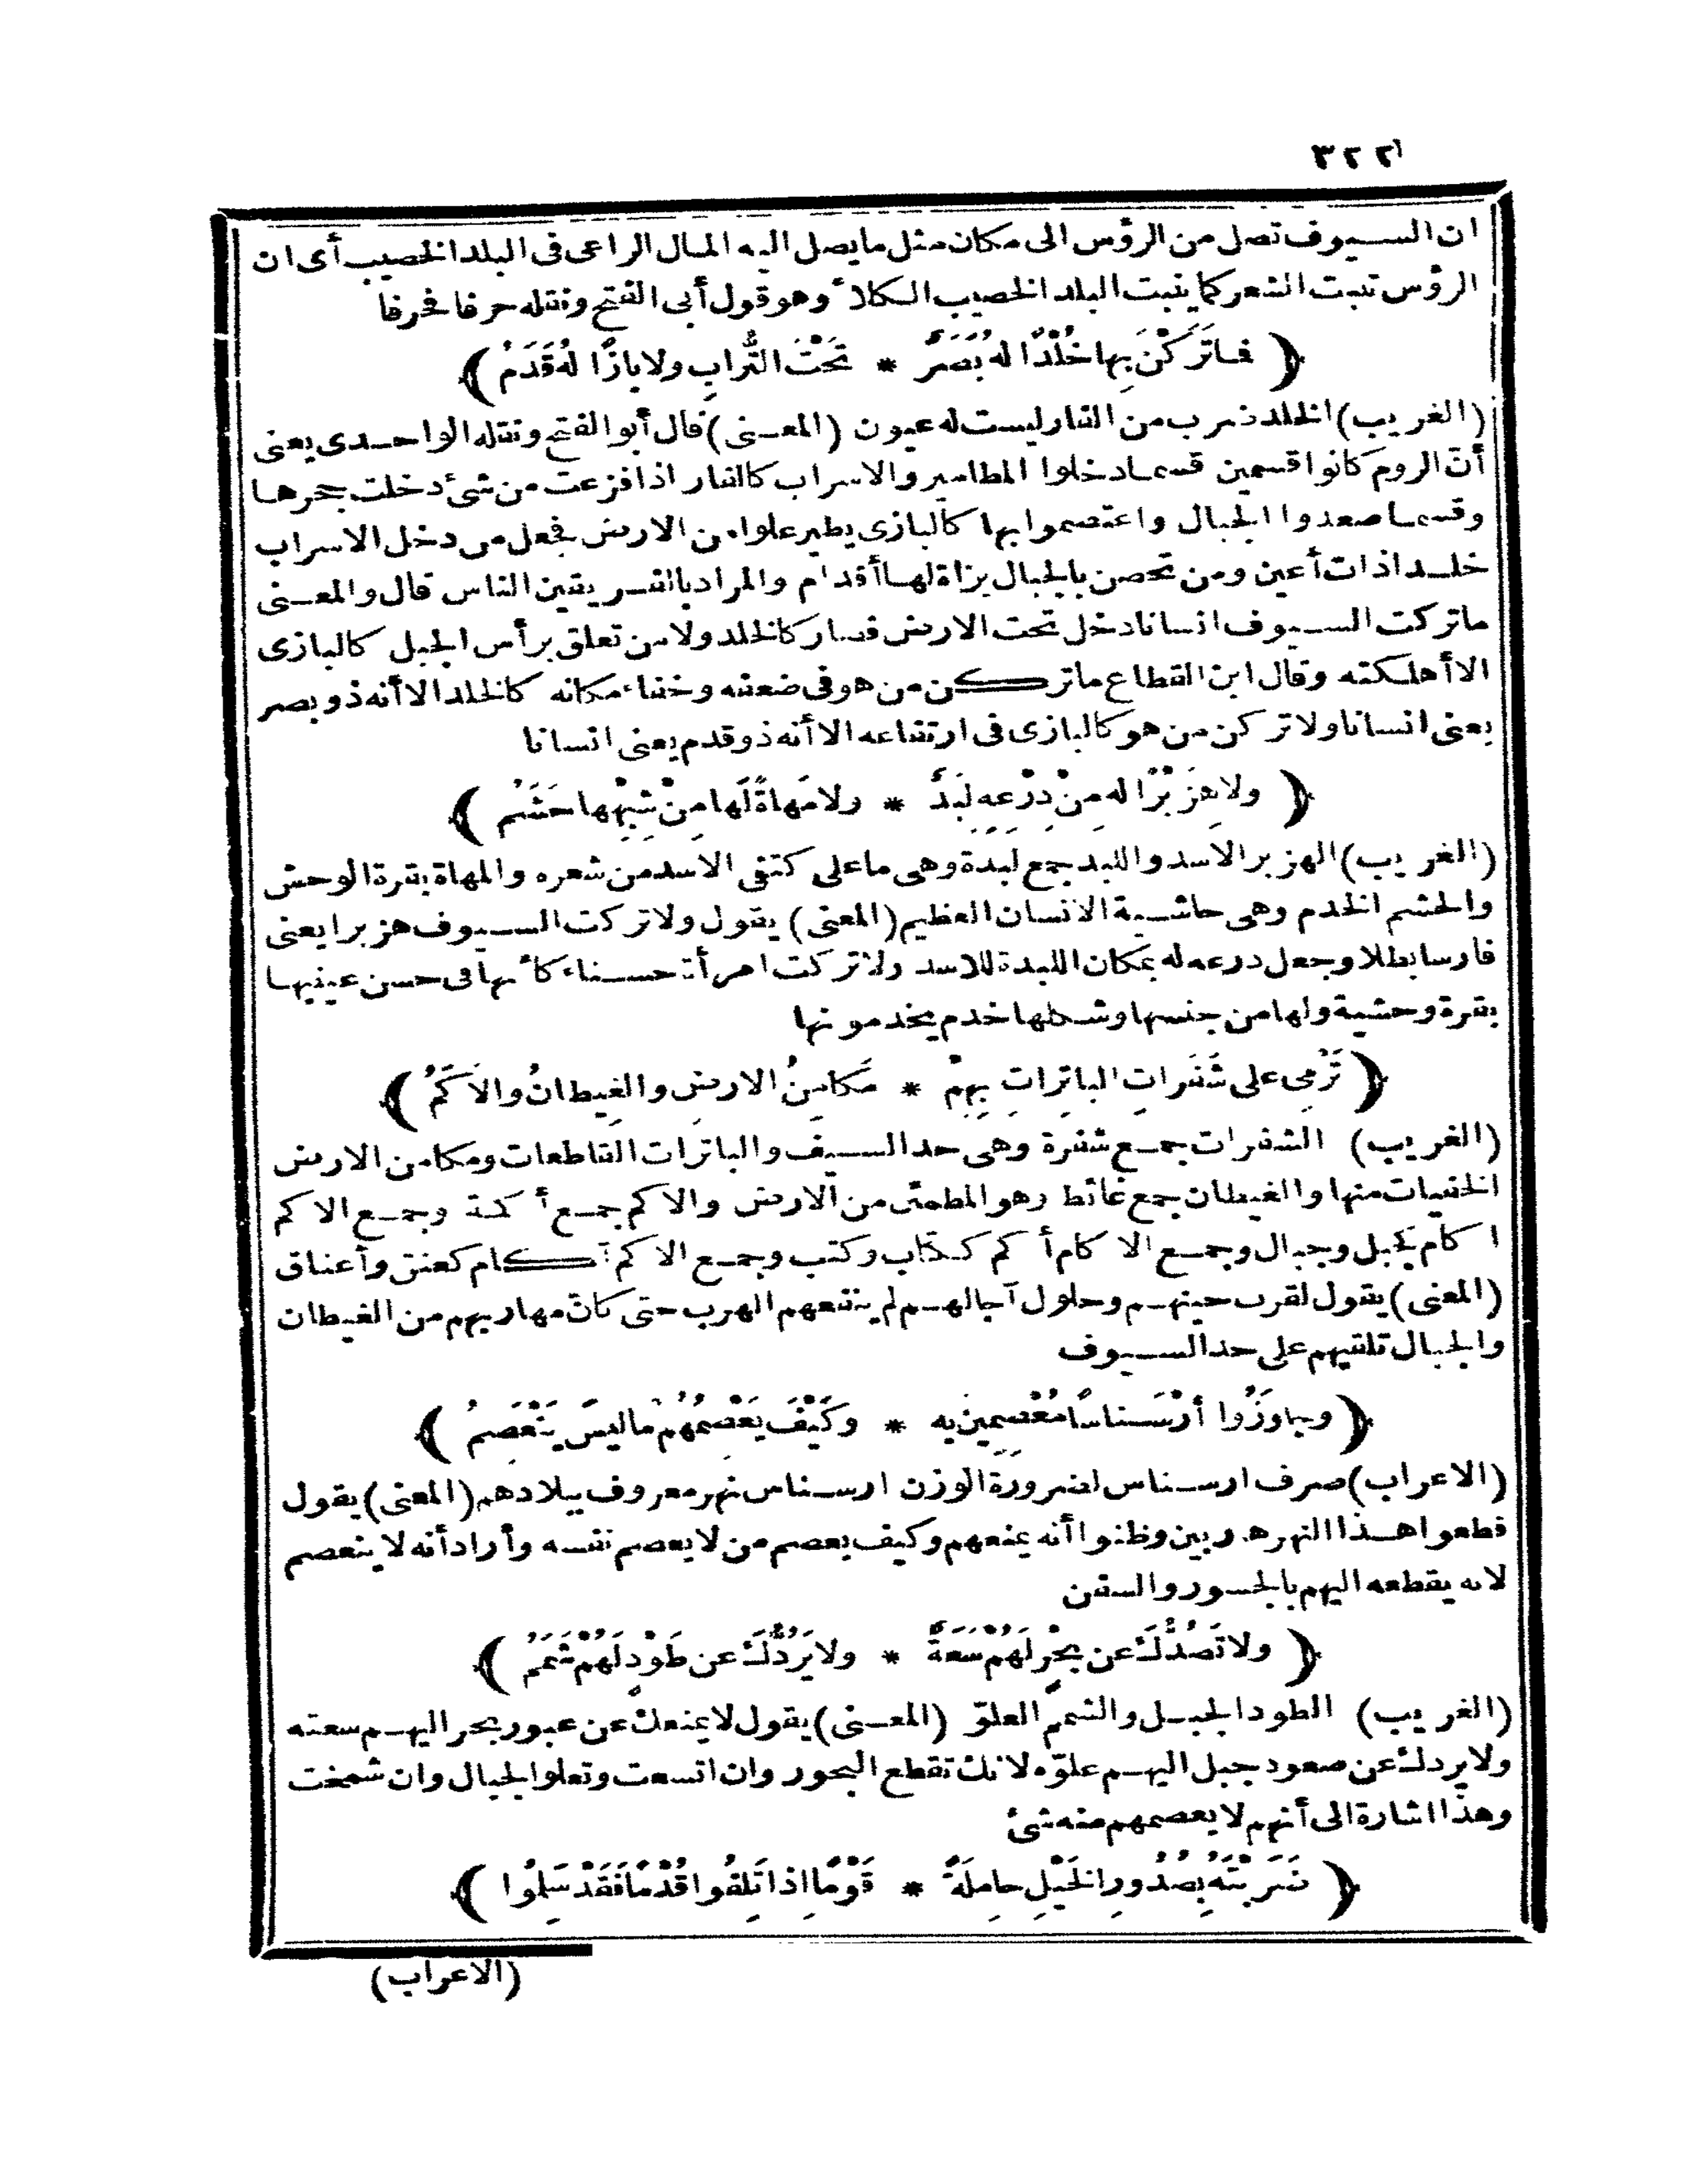 ٣٢٢
ان السيوف تصل من الرؤس الى مكان مثل ما يصل اليه المال الراعى فى البلد الخصيب أى ان
الرؤس تنبت الشعر كما ينبت البلد الخصيب الكلأ وهو قول أبى الفتح ونقله حرفا فحرفا
﴿ فما تَرَكْنَ بِها خُلْدًا له بَصَرٌ * تَحْتَ التُّرابِ ولا بازًا له قَدَمُ ﴾
(الغريب) الخلد ضرب من الفار ليست له عيون (المعنى) قال أبو الفتح ونقله الواحدى يعنى
أنّ الروم كانوا قسمين قسما دخلوا المطامير والاسراب كالفار اذا فزعت من شئ دخلت جحرها
وقسما صعدوا الجبال واعتصموا بها كالبازى يطير علوا من الارض فجعل من دخل الاسراب
خلدا ذات أعين ومن تحصن بالجبال بزاة لها أقدام والمراد بالفريقين الناس قال والمعنى
ما تركت السيوف انسانا دخل تحت الارض فصار كالخلد ولا من تعلق برأس الجبل كالبازى
الا أهلكته وقال ابن القطاع ما تركن من هو فى ضعفه وخفاء مكانه كالخلد الا أنه ذو بصر
يعنى انسانا ولا تركن من هو كالبازى فى ارتفاعه الا أنه ذو قدم يعنى انسانا
﴿ ولا هِزَبْرًا له مِنْ دِرْعِهِ لِبَدٌ * ولا مَهاةً لَها مِنْ شِبْهِها حَشَمُ ﴾
(الغريب) الهزبر الاسد واللبد جمع لبدة وهى ما على كتفى الاسد من شعره والمهاة بقرة الوحش
والحشم الخدم وهى حاشية الانسان العظيم (المعنى) يقول ولا تركت السيوف هزبرا يعنى
فارسا بطلا وجعل درعه له بمكان اللبدة للاسد ولا تركت امرأة حسناء كأنها فى حسن عينيها
بقرة وحشية ولها من جنسها وشكلها خدم يخدمونها
﴿ تَرْمِى على شَفَراتِ الباتِراتِ بِهِمْ * مَكامِنُ الارضِ والغِيطانُ والأَكَمُ ﴾
(الغريب) الشفرات جمع شفرة وهى حد السيف والباترات القاطعات ومكامن الارض
الخفيات منها والغيطان جمع غائط وهو المطمئن من الارض والاكم جمع أكمة وجمع الاكم
اكام كجبل وجبال وجمع الاكام أكم ككتاب وكتب وجمع الاكم آكام كعنق وأعناق
(المعنى) يقول لقرب حينهم وحلول آجالهم لم ينفعهم الهرب حتى كانّ مهاربهم من الغيطان
والجبال تلقيهم على حد السيوف
﴿ وجاوَزُوا أَرْسَناسًا مُعْصِمِينَ به * وكَيْفَ يَعْصِمُهُمْ ما ليسَ يَنْعَصِمُ ﴾
(الاعراب) صرف ارسناس لضرورة الوزن ارسناس نهر معروف ببلادهم (المعنى) يقول
قطعوا هذا النهر هاربين وظنوا أنه يمنعهم وكيف يعصم من لا يعصم نفسه وأراد أنه لا ينعصم
لانه يقطعه اليهم بالجسور والسفن
﴿ ولا تَصُدُّكَ عن بَحْرٍ لَهُمْ سَعَةٌ * ولا يَرُدُّكَ عن طَوْدٍ لَهُمْ شَمَمُ ﴾
(الغريب) الطود الجبل والشمم العلوّ (المعنى) يقول لا يمنعك عن عبور بحر اليهم سعته
ولا يردك عن صعود جبل اليهم علوّه لانك تقطع البحور وان اتسعت وتعلو الجبال وان شمخت
وهذا اشارة الى أنهم لا يعصمهم منه شئ
﴿ ضَرَبْتَهُ بِصُدُورِ الخَيْلِ حامِلَةً * قَوْمًا اذا تَلِفُوا قُدْمًا فَقَدْ سَلِمُوا ﴾
(الاعراب)